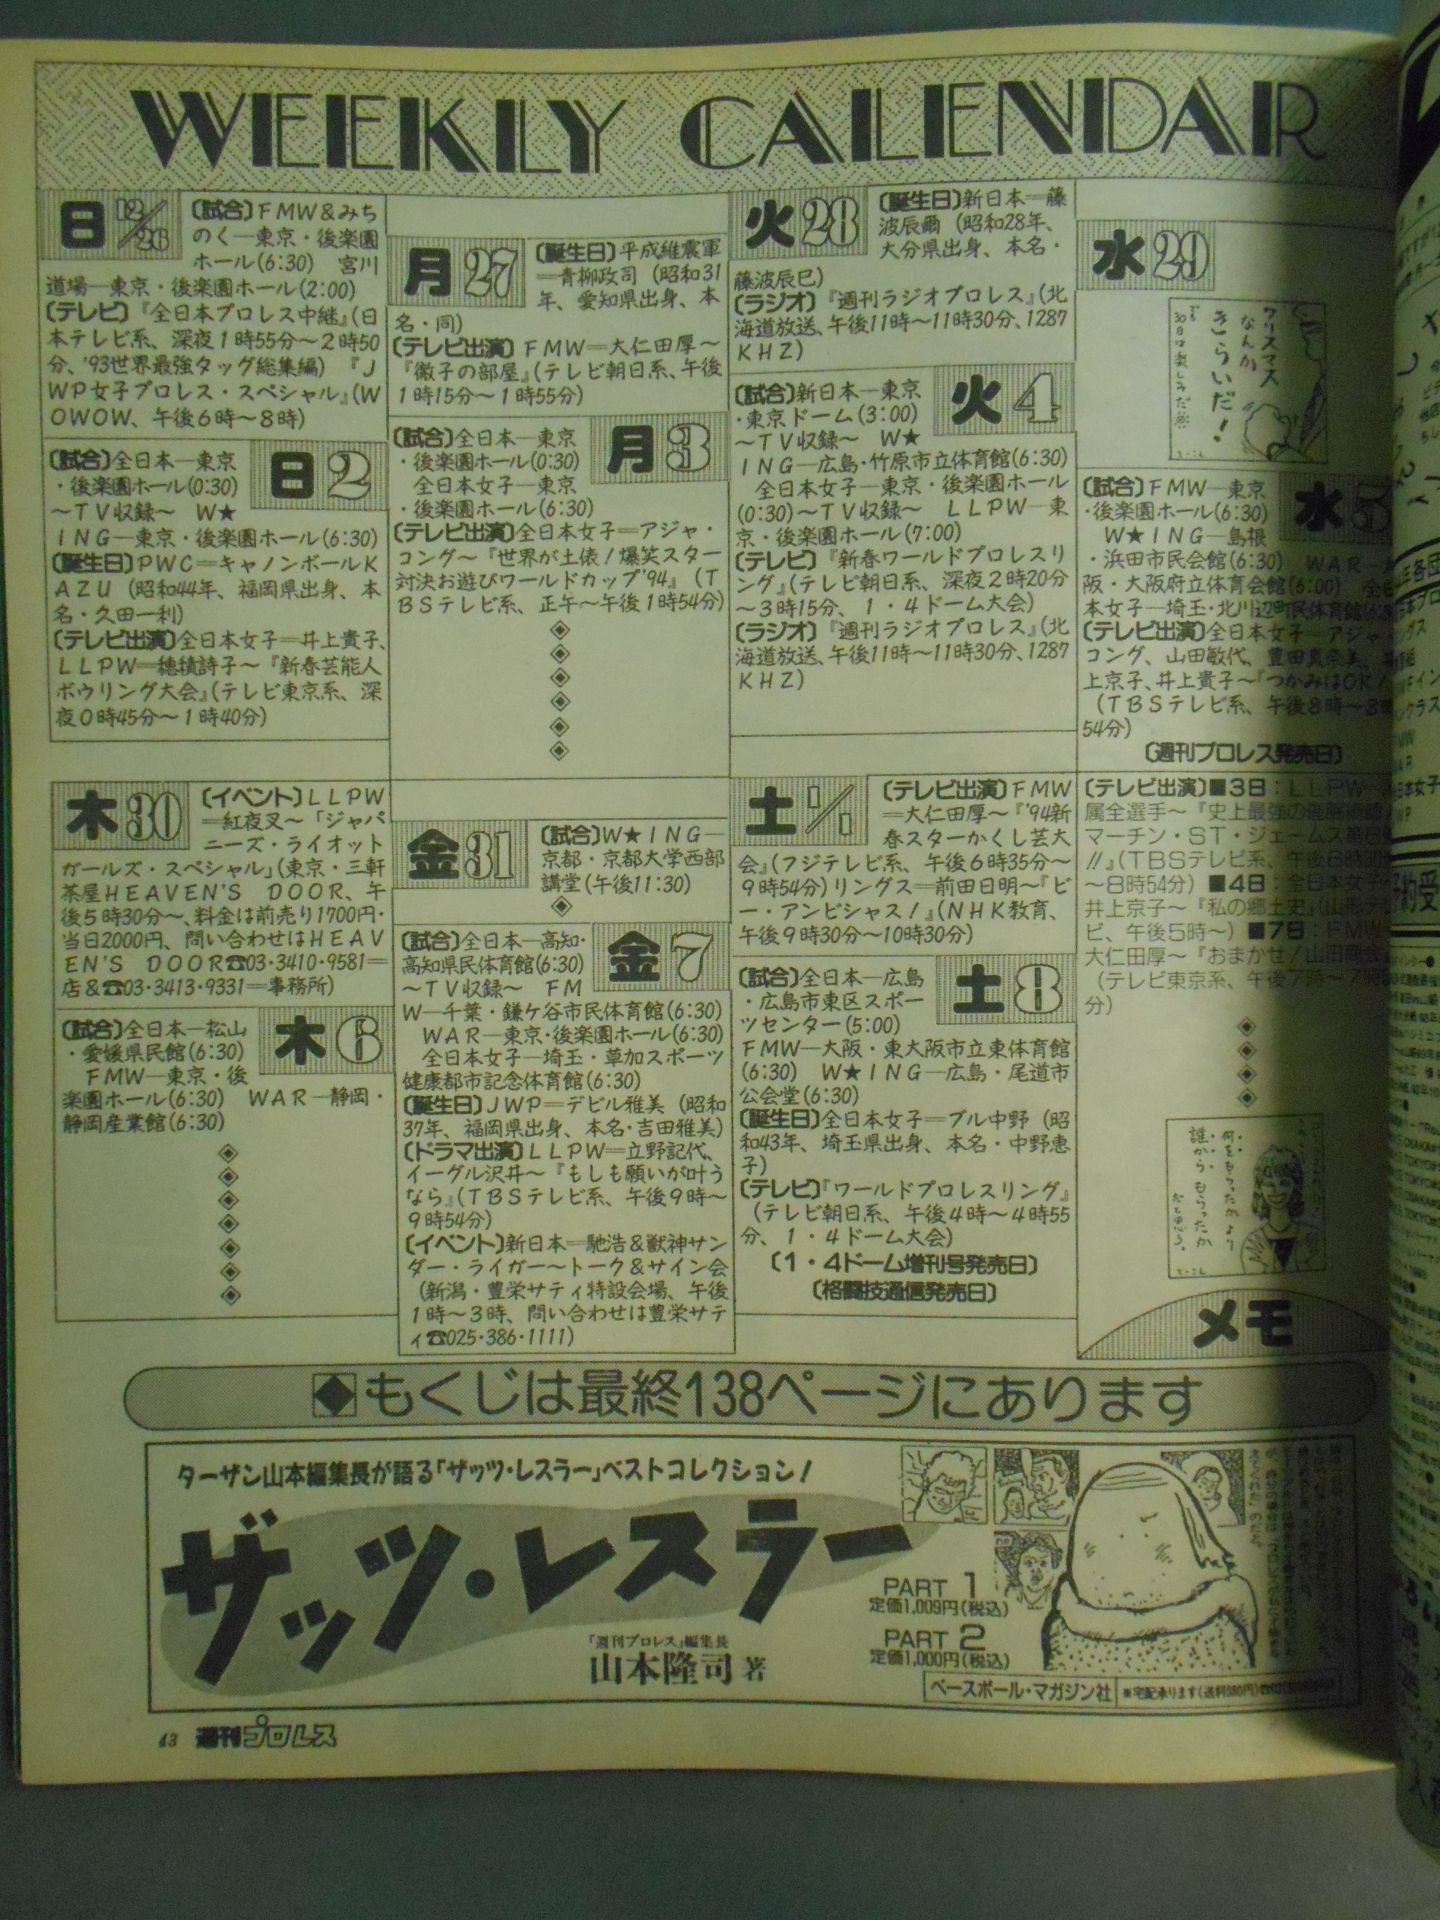 WEEKLY CALENDAR
日12/26
〔試合〕FMW&みち
のく―東京・後楽園
ホール(6:30) 宮川
道場―東京・後楽園ホール(2:00)
〔テレビ〕『全日本プロレス中継』(日
本テレビ系、深夜1時55分〜2時50
分、'93世界最強タッグ総集編) 『J
WP女子プロレス・スペシャル』(W
OWOW、午後6時〜8時)
日2
〔試合〕全日本―東京
・後楽園ホール(0:30)
〜TV収録〜 W★
ING―東京・後楽園ホール(6:30)
〔誕生日〕PWC=キャノンボールK
AZU (昭和44年、福岡県出身、本
名・久田一利)
〔テレビ出演〕全日本女子=井上貴子、
LLPW=穂積詩子〜『新春芸能人
ボウリング大会』(テレビ東京系、深
夜0時45分〜1時40分)
月27
〔誕生日〕平成維震軍
=青柳政司 (昭和31
年、愛知県出身、本
名・同)
〔テレビ出演〕FMW=大仁田厚〜
『徹子の部屋』(テレビ朝日系、午後
1時15分〜1時55分)
月3
〔試合〕全日本―東京
・後楽園ホール(0:30)
全日本女子―東京
・後楽園ホール(6:30)
〔テレビ出演〕全日本女子=アジャ・
コング〜『世界が土俵!爆笑スター
対決お遊びワールドカップ'94』(T
BSテレビ系、正午〜午後1時54分)
火28
〔誕生日〕新日本=藤
波辰爾 (昭和28年、
大分県出身、本名・
藤波辰巳)
〔ラジオ〕『週刊ラジオプロレス』(北
海道放送、午後11時〜11時30分、1287
KHZ)
火4
〔試合〕新日本―東京
・東京ドーム(3:00)
〜TV収録〜 W★
ING―広島・竹原市立体育館(6:30)
全日本女子―東京・後楽園ホール
(0:30)〜TV収録〜 LLPW―東
京・後楽園ホール(7:00)
〔テレビ〕『新春ワールドプロレスリ
ング』(テレビ朝日系、深夜2時20分
〜3時15分、1・4ドーム大会)
〔ラジオ〕『週刊ラジオプロレス』(北
海道放送、午後11時〜11時30分、1287
KHZ)
水29
クリスマス
なんか
きらいだ!
水5
〔試合〕FMW―東京
・後楽園ホール(6:30)
W★ING―島根
・浜田市民会館(6:30) WAR―大
阪・大阪府立体育会館(6:00) 全日
本女子―埼玉・北川辺町民体育館
〔テレビ出演〕全日本女子=アジャ・
コング、山田敏代、豊田真奈美、井
上京子、井上貴子〜『つかみはOK!』
(TBSテレビ系、午後8時〜8時
54分)
〔週刊プロレス発売日〕
木30
〔イベント〕LLPW
=紅夜叉〜「ジャパ
ニーズ・ライオット
ガールズ・スペシャル」(東京・三軒
茶屋HEAVEN'S DOOR、午
後5時30分〜、料金は前売り1700円・
当日2000円、問い合わせはHEAV
EN'S DOOR☎03・3410・9581=
店&☎03・3413・9331=事務所)
木6
〔試合〕全日本―松山
・愛媛県民館(6:30)
FMW―東京・後
楽園ホール(6:30) WAR―静岡・
静岡産業館(6:30)
金31
〔試合〕W★ING―
京都・京都大学西部
講堂(午後11:30)
金7
〔試合〕全日本―高知・
高知県民体育館(6:30)
〜TV収録〜 FM
W―千葉・鎌ケ谷市民体育館(6:30)
WAR―東京・後楽園ホール(6:30)
全日本女子―埼玉・草加スポーツ
健康都市記念体育館(6:30)
〔誕生日〕JWP=デビル雅美 (昭和
37年、福岡県出身、本名・吉田雅美)
〔ドラマ出演〕LLPW=立野記代、
イーグル沢井〜『もしも願いが叶う
なら』(TBSテレビ系、午後9時〜
9時54分)
〔イベント〕新日本=馳浩&獣神サン
ダー・ライガー〜トーク&サイン会
(新潟・豊栄サティ特設会場、午後
1時〜3時、問い合わせは豊栄サテ
ィ☎025・386・1111)
土1/1
〔テレビ出演〕FMW
=大仁田厚〜『'94新
春スターかくし芸大
会』(フジテレビ系、午後6時35分〜
9時54分)リングス=前田日明〜『ビ
ー・アンビシャス!』(NHK教育、
午後9時30分〜10時30分)
土8
〔試合〕全日本―広島
・広島市東区スポー
ツセンター(5:00)
FMW―大阪・東大阪市立東体育館
(6:30) W★ING―広島・尾道市
公会堂(6:30)
〔誕生日〕全日本女子=ブル中野 (昭
和43年、埼玉県出身、本名・中野恵
子)
〔テレビ〕『ワールドプロレスリング』
(テレビ朝日系、午後4時〜4時55
分、1・4ドーム大会)
〔1・4ドーム増刊号発売日〕
〔格闘技通信発売日〕
〔テレビ出演〕■3日:LLPW=
属全選手〜『史上最強の催眠術師
マーチン・ST・ジェームス第6弾
!!』(TBSテレビ系、午後6時
〜8時54分) ■4日:全日本女子=
井上京子〜『私の郷土史』(山形テレ
ビ、午後5時〜) ■7日:FMW=
大仁田厚〜『おまかせ!山田商会』
(テレビ東京系、午後7時〜7時
分)
何をもらったかより
誰からもらったか
だと思う。
メモ
◆もくじは最終138ページにあります
ターザン山本編集長が語る「ザッツ・レスラー」ベストコレクション!
ザッツ・レスラー
「週刊プロレス」編集長
山本隆司 著
PART 1
定価1,009円(税込)
PART 2
定価1,000円(税込)
ベースボール・マガジン社
※宅配承ります(送料380円)
43 週刊プロレス